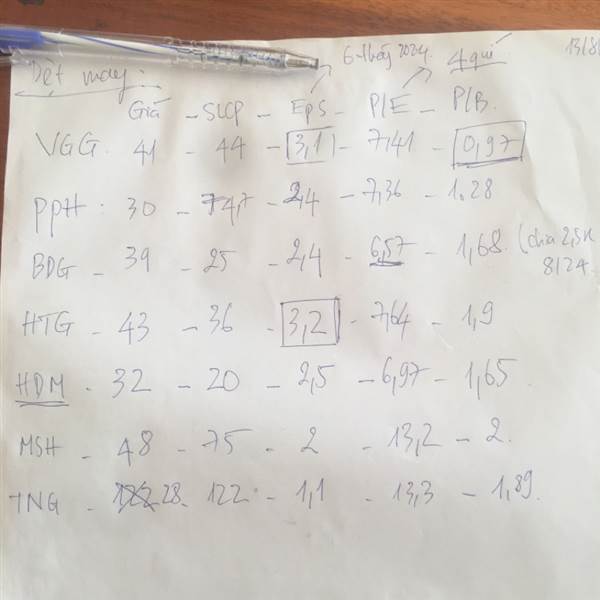 6 tháng 2024. 4 quí 13/8/
Dệt may:
Giá - SLCP - EpS - P/E - P/B.
VGG. 41 - 44 - 3,1 - 7,41 - 0,97
PPH: 30 - 74,7 - 2,4 - 7,36 - 1.28
BDG - 39 - 25 - 2,4 - 6,57 - 1,68. (chia 2,5k
8/24.
HTG - 43 - 36 - 3,2 - 7,64 - 1,9
HDM - 32 - 20 - 2,5 - 6,97 - 1,65.
MSH - 48 - 75 - 2 - 13,2 - 2.
TNG - 28 - 122 - 1,1 - 13,3 - 1,89.